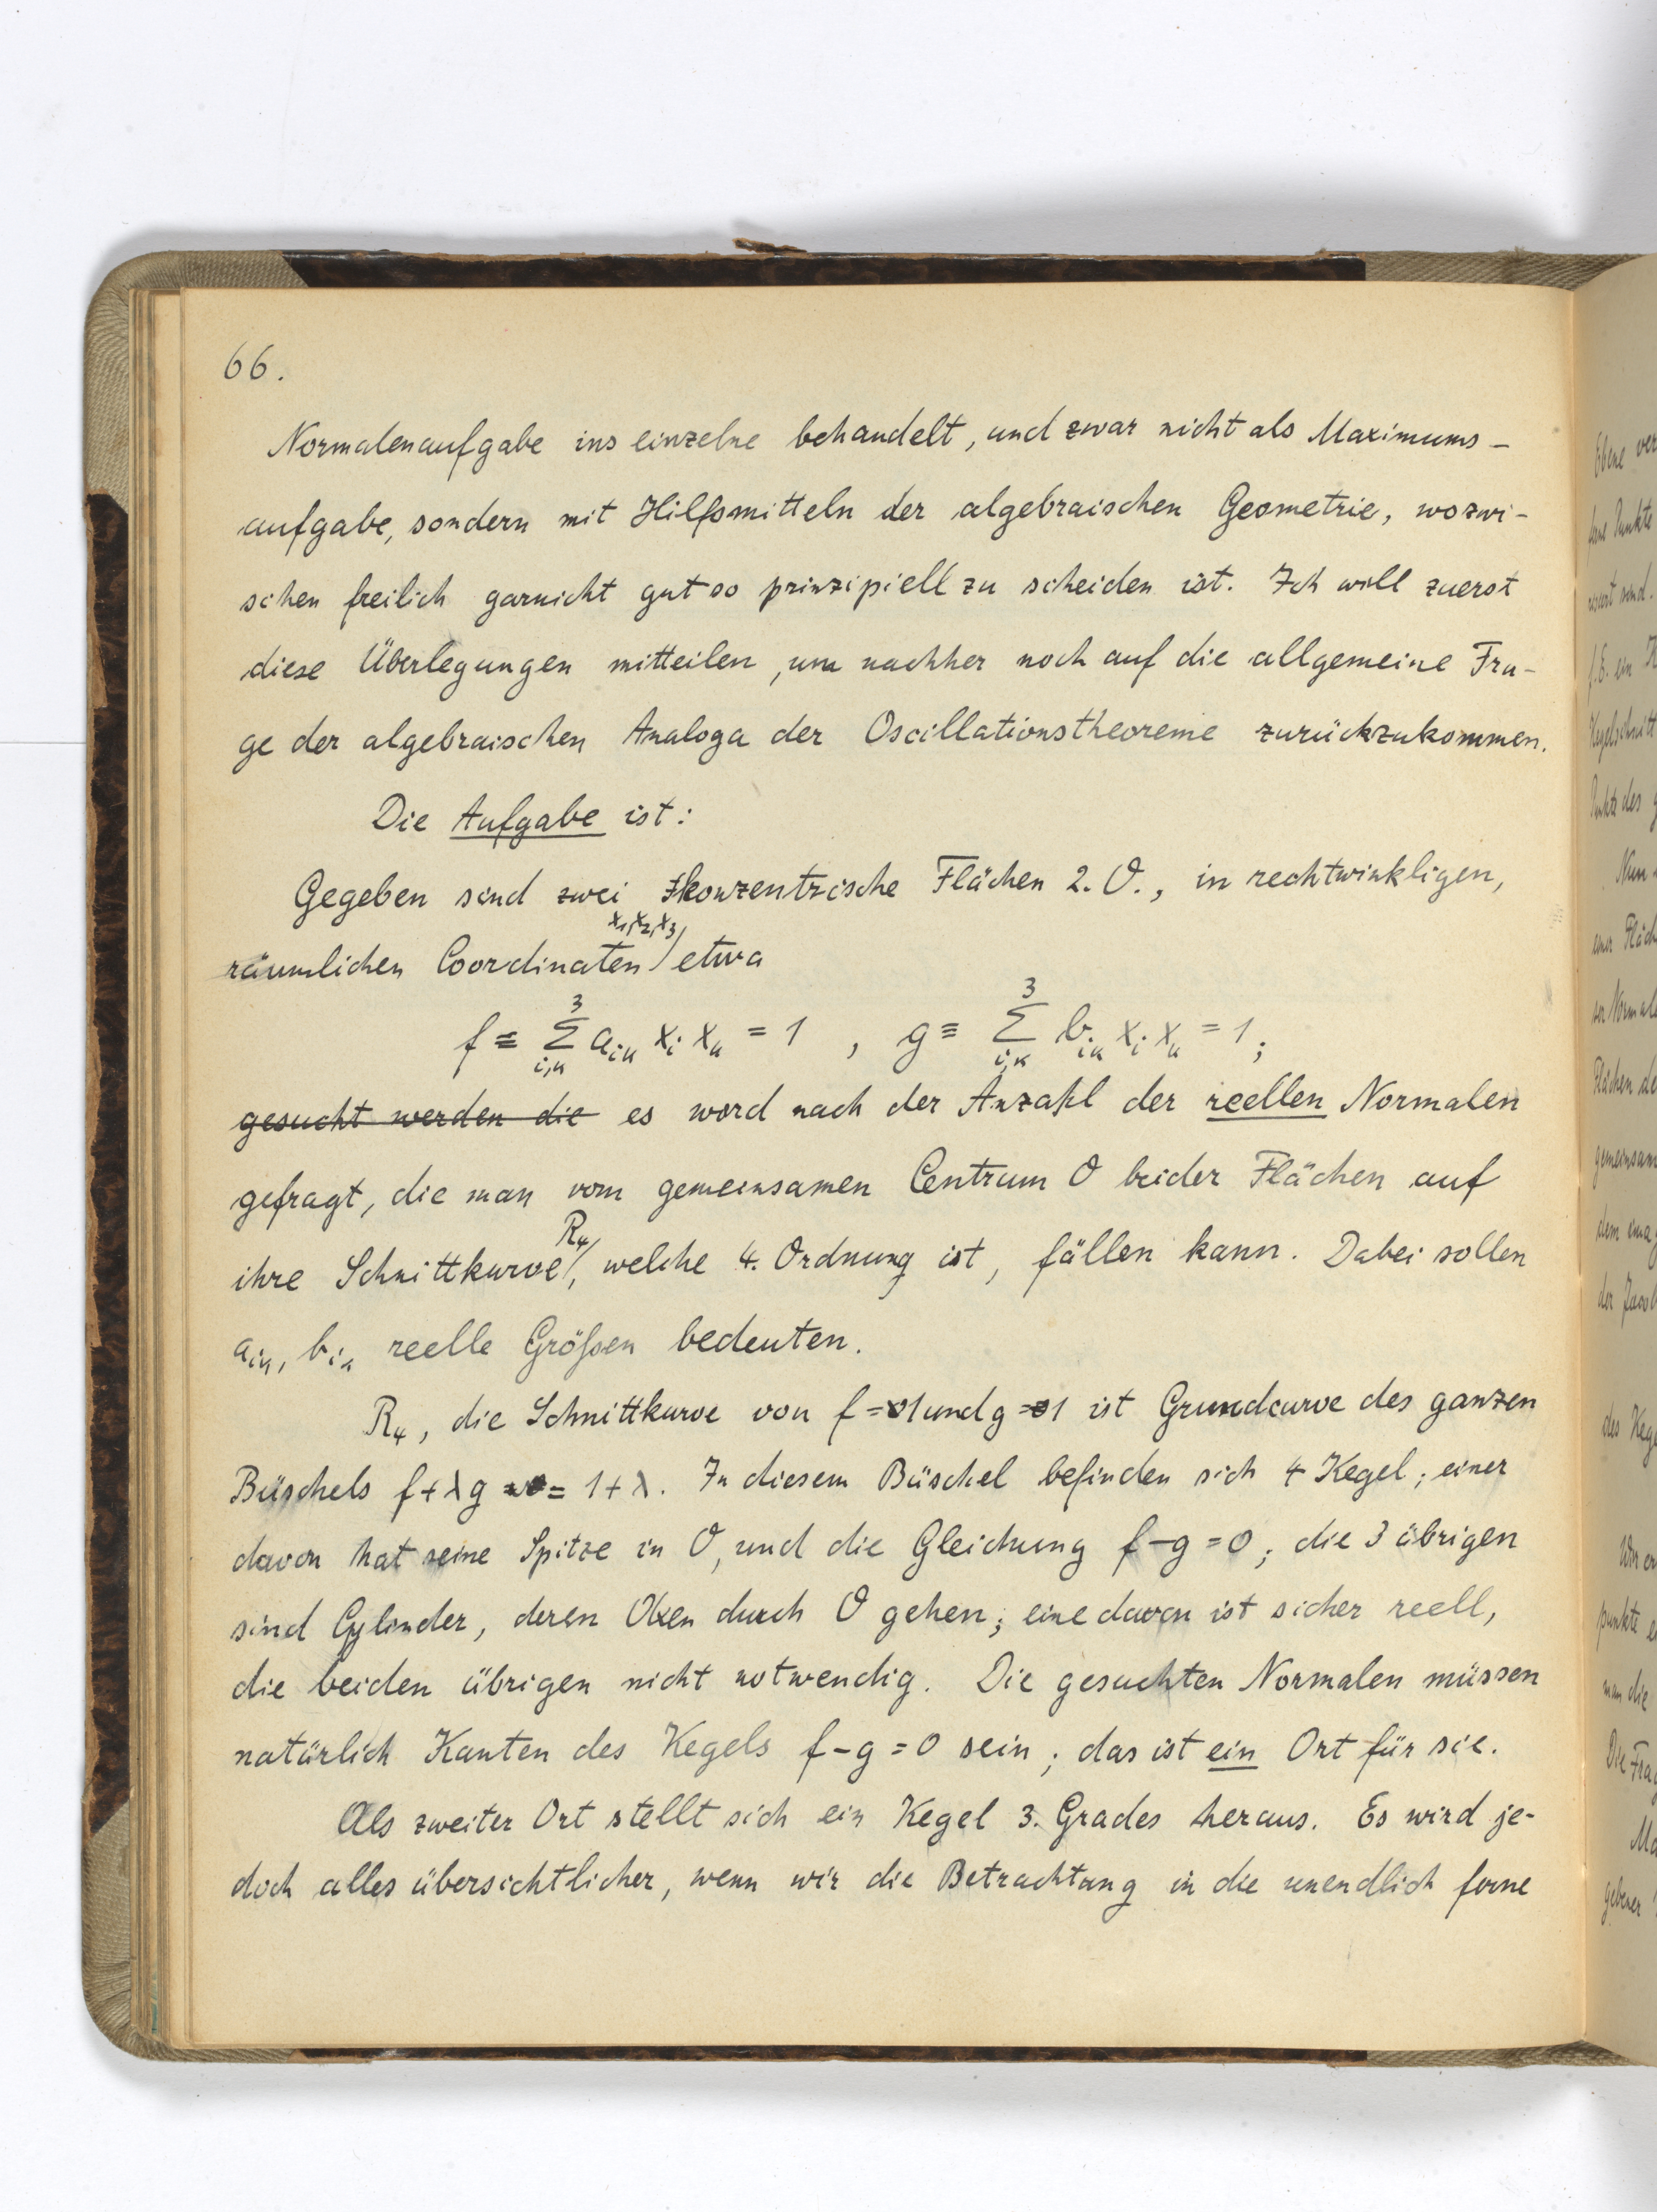 66.
Normalenaufgabe ins einzelne behandelt, und zwar nicht als Maximums-
aufgabe, sondern mit Hilfsmitteln der algebraischen Geometrie, wozwi-
schen freilich garnicht gut so prinzipiell zu scheiden ist. Ich will zuerst
diese Überlegungen mitteilen, um nachher noch auf die allgemeine Fra-
ge der algebraischen Analoga der Oscillationstheoreme zurückzukommen.
Die Aufgabe ist:
Gegeben sind zwei konzentrische Flächen 2. O., in rechtwinkligen,
x₁,x₂,x₃
räumlichen Coordinaten / etwa
f ≡ 3 Σ i,k aᵢₖ xᵢ xₖ = 1 , g ≡ 3 Σ i,k bᵢₖ xᵢ xₖ = 1;
gesucht werden die es word nach der Anzahl der reellen Normalen
gefragt, die man vom gemeinsamen Centrum O beider Flächen auf
R₄
ihre Schnittkurve/, welche 4. Ordnung ist, fällen kann. Dabei sollen
aᵢₖ, bᵢₖ reelle Größen bedeuten.
R₄, die Schnittkurve von f = 1 und g = 1 ist Grundcurve des ganzen
Büschels f + λg = 1 + λ. In diesem Büschel befinden sich 4 Kegel; einer
davon hat seine Spitze in O, und die Gleichung f - g = 0; die 3 übrigen
sind Cylinder, deren Axen durch O gehen; eine davon ist sicher reell,
die beiden übrigen nicht notwendig. Die gesuchten Normalen müssen
natürlich Kanten des Kegels f - g = 0 sein; das ist ein Ort für sie.
Als zweiter Ort stellt sich ein Kegel 3. Grades heraus. Es wird je-
doch alles übersichtlicher, wenn wir die Betrachtung in die unendlich ferne